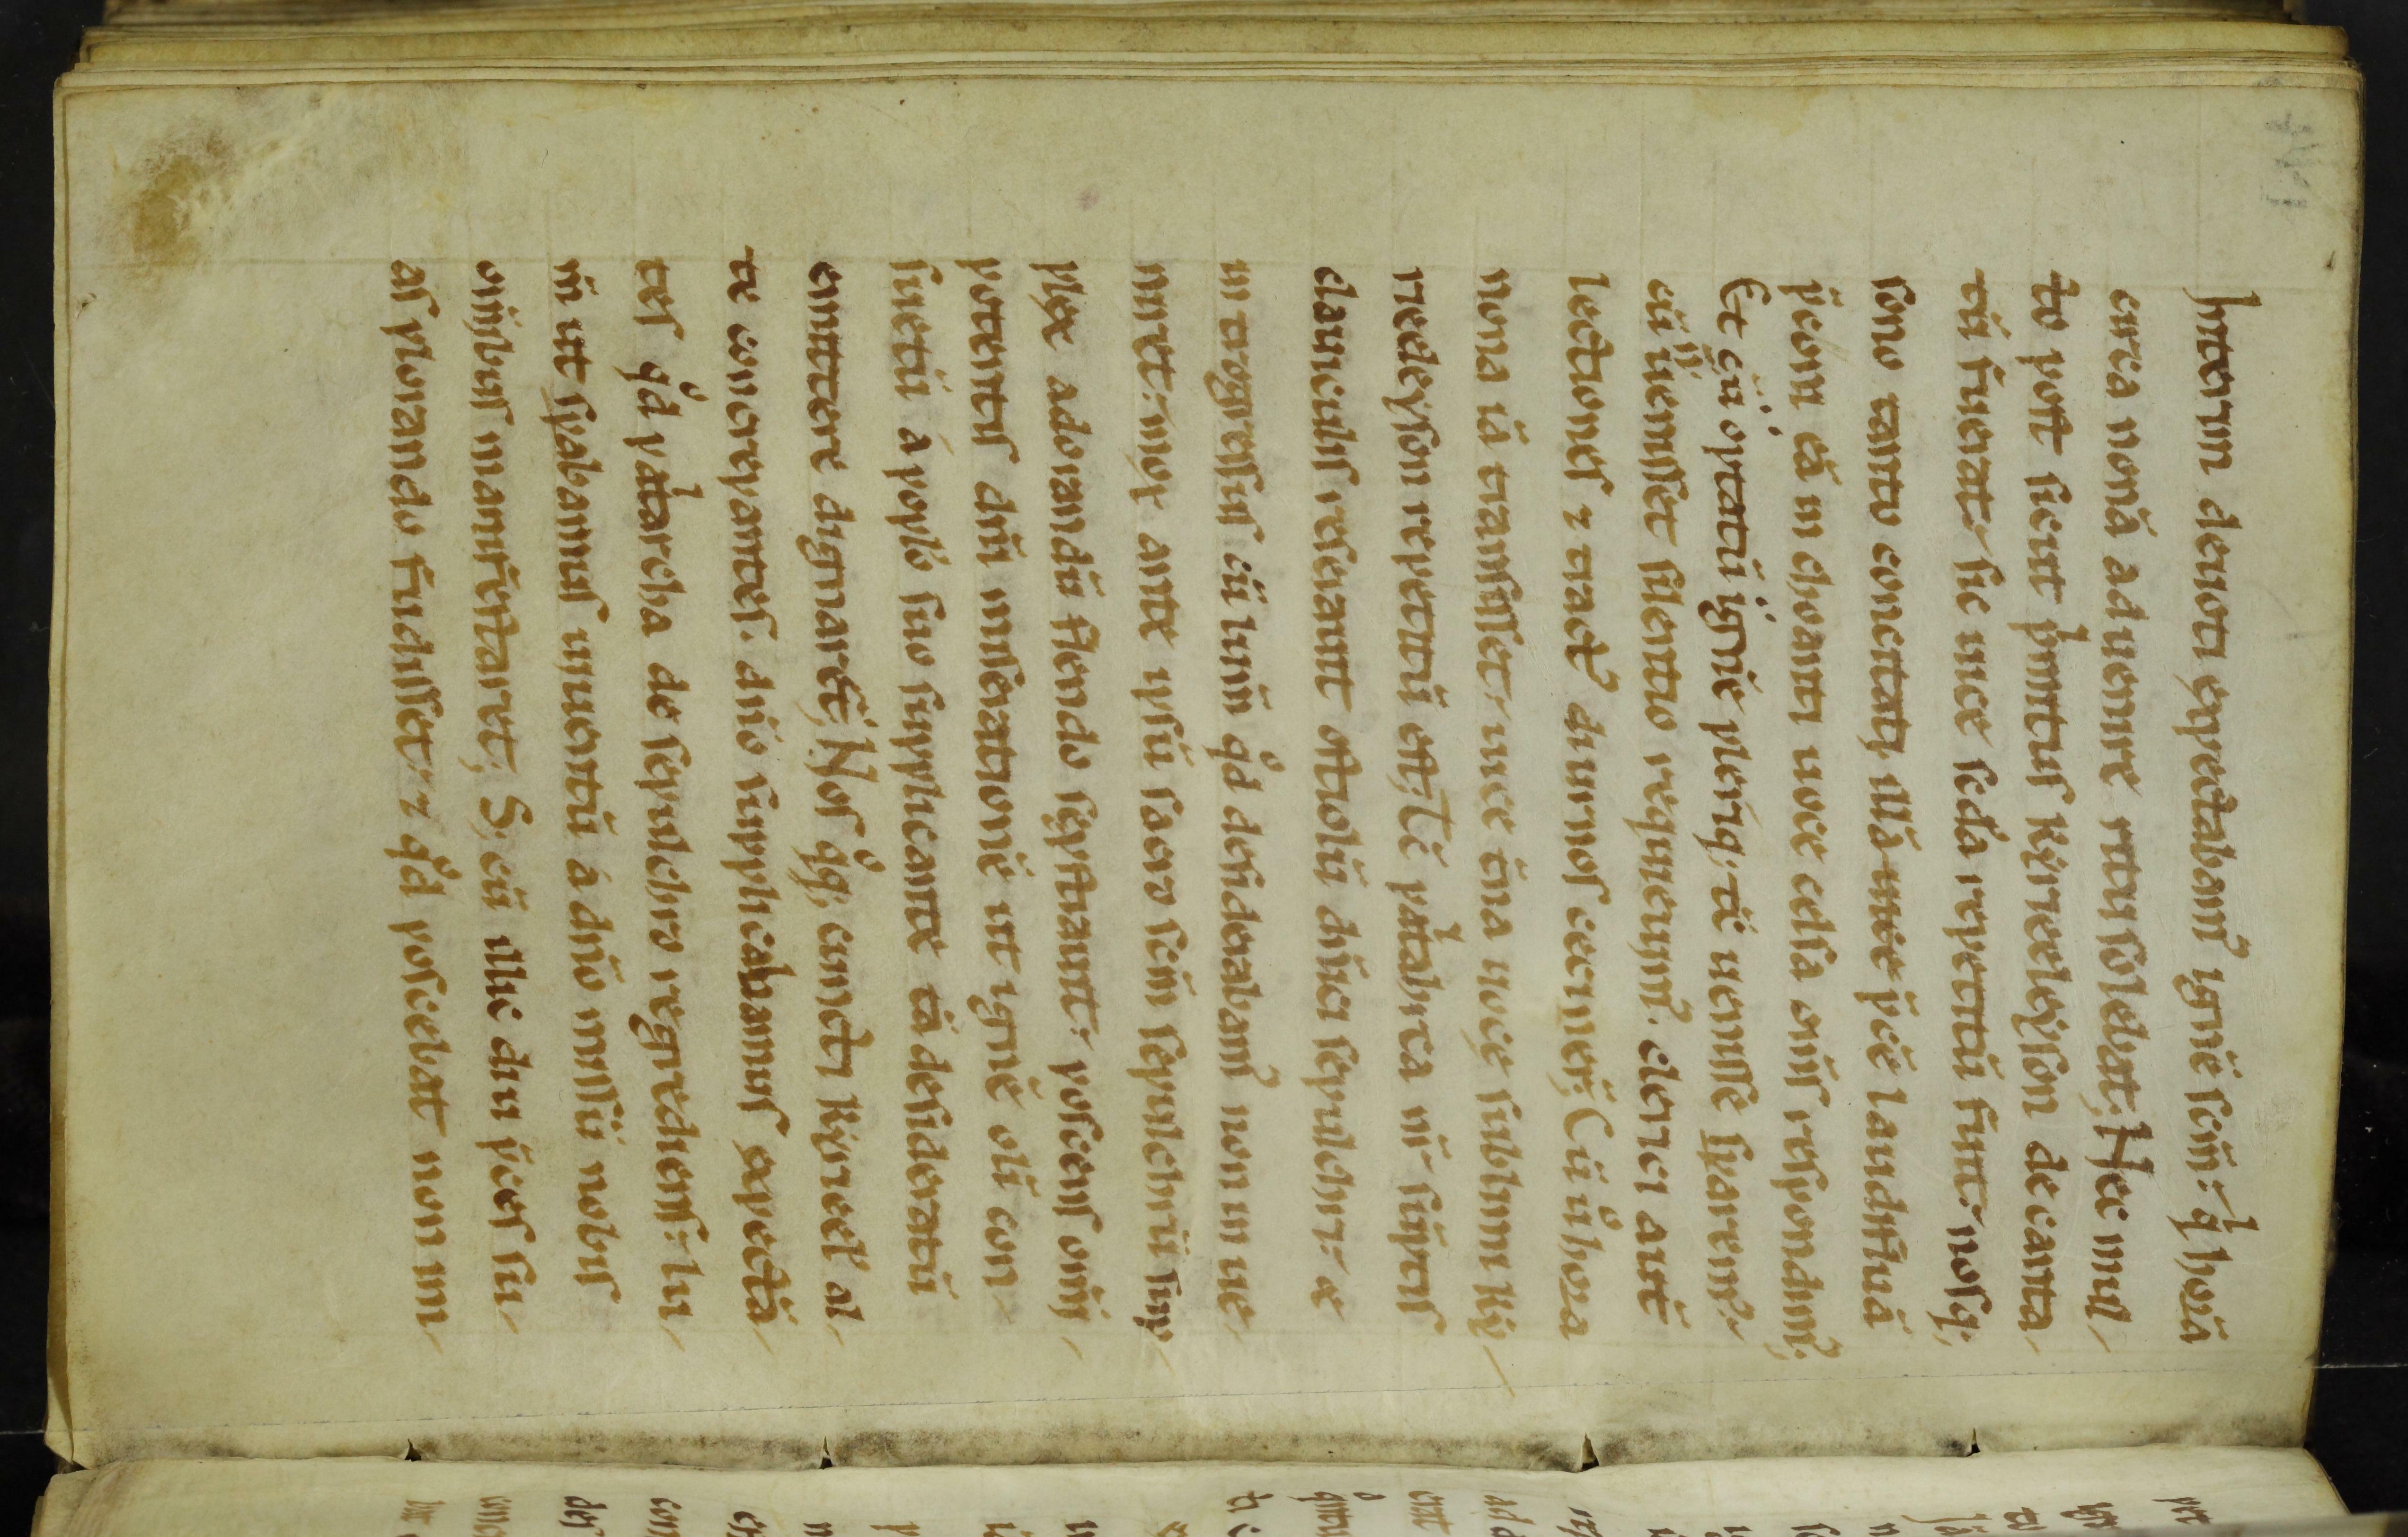 Interim deuoti expectabam᷒ ignē scm̄: q horā
circa nonā aduenire rati solebat; Nec mul
to post sicut p̄mitus kirieeleyson decanta
tū fuerat: sic uice scd̄a repetitū fuit: nosq;
sono tanto concitati, illā uice p̄cē laudifluā
p̄coni eā in choanti uoce celsa om̄s respondim᷒;
Et cū optatū ignē pleriq; tē uenisse sparent᷒:
cū n̄ uenisset silentio requieuim᷒. clerici aut̄
lectiones ⁊ tract᷒ diurnos ceciner̄; Cū ů hora
nona iā transisset: uice t̄na uoce sublimi ky
rieleyson repetitū est; Tc̄ pat̍abrca n̄r supius
clauiculis reserauit ostiolū dn̄ici sepulchri: &
introgressus cū lum̄ q̊d desiderabam᷒ non inue
niret: mox ante ipsū sacro scm̄ sepulchrū sup
plex adorandū flendo seprostrauit: poscens om̄i
potentis dn̄i miserationē ut ignē oli con
suetū a poplo suo supplicante tā desideratū
emittere dignaret᷒; Nos q̊q; cuncti kirieel al
te concrepantes. dn̄o supplicabamus expectā
tes q̊d pat̍archa de sepulchro regrediens: lu
m̄ ut sp̄abamus inuentū a dn̄o missū nobis
om̄ibus manifestaret; S; cū illic diu p̄ces su
as plorando fudisset: ⁊ q̊d poscebat non im